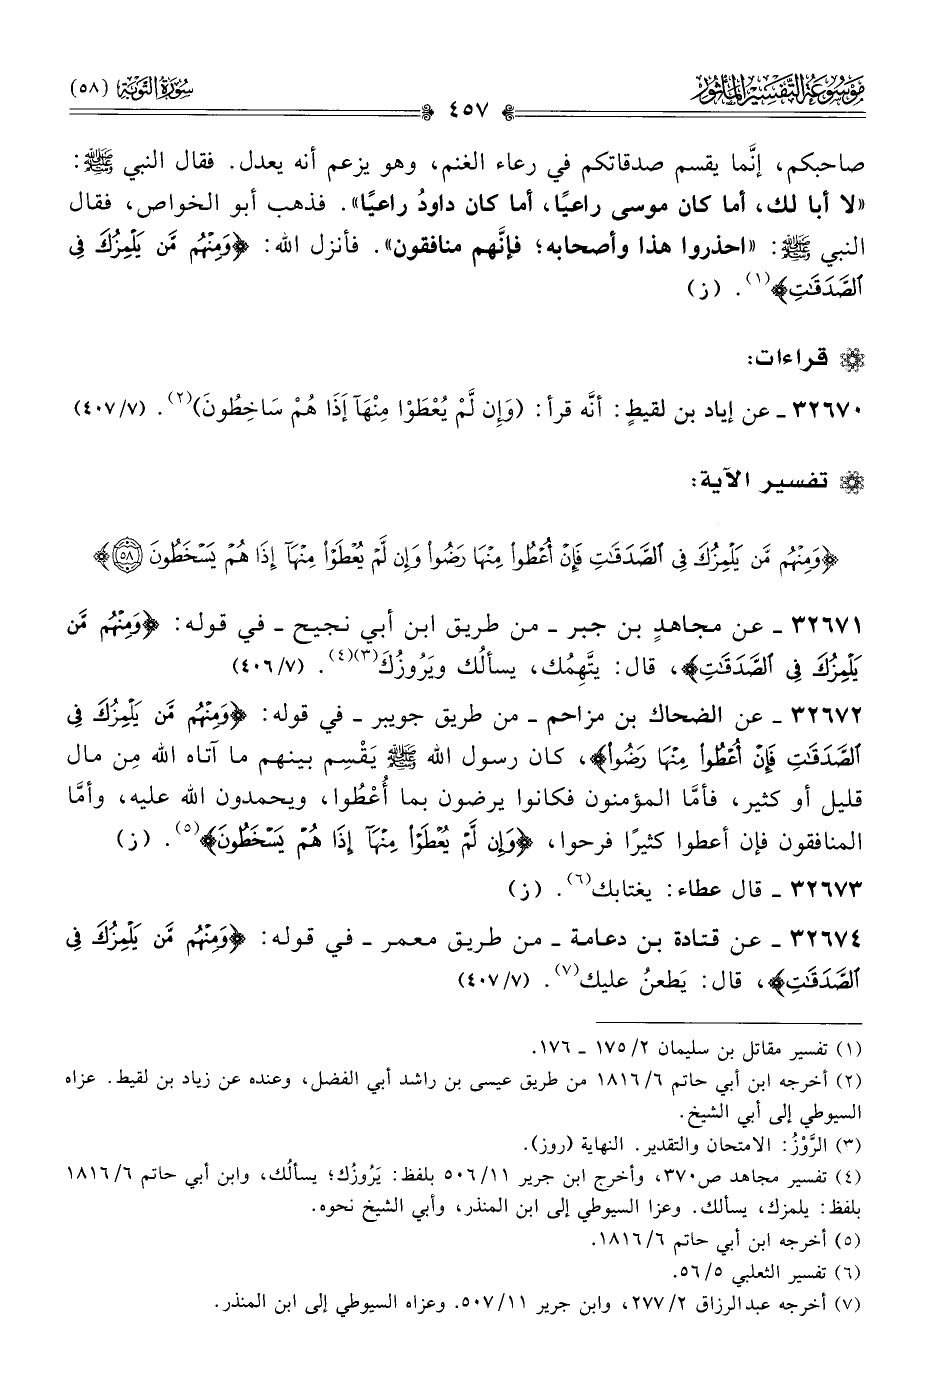 موسوعة التفسير المأثور
سورة التوبة (٥٨)
٤٥٧
صاحبكم، إنَّما يقسم صدقاتكم في رعاء الغنم، وهو يزعم أنه يعدل. فقال النبي ﷺ:
«لا أبا لك، أما كان موسى راعيًا، أما كان داودُ راعيًا». فذهب أبو الخواص، فقال
النبي ﷺ: «احذروا هذا وأصحابه؛ فإنَّهم منافقون». فأنزل الله: ﴿وَمِنْهُم مَّن يَلْمِزُكَ فِى
ٱلصَّدَقَٰتِ﴾(١). (ز)
قراءات:
٣٢٦٧٠ ـ عن إياد بن لقيطٍ: أنَّه قرأ: (وَإِن لَّمْ يُعْطَوْا مِنْهَآ إِذَا هُمْ سَاخِطُونَ)(٢). (٤٠٧/٧)
تفسير الآية:
﴿وَمِنْهُم مَّن يَلْمِزُكَ فِى ٱلصَّدَقَٰتِ فَإِنْ أُعْطُوا۟ مِنْهَا رَضُوا۟ وَإِن لَّمْ يُعْطَوْا۟ مِنْهَآ إِذَا هُمْ يَسْخَطُونَ ٥٨﴾
٣٢٦٧١ ـ عن مجاهدٍ بن جبر ـ من طريق ابن أبي نجيح ـ في قوله: ﴿وَمِنْهُم مَّن
يَلْمِزُكَ فِى ٱلصَّدَقَٰتِ﴾، قال: يتَّهِمُك، يسألُك ويَرُوزُكَ(٣)(٤). (٤٠٦/٧)
٣٢٦٧٢ ـ عن الضحاك بن مزاحم ـ من طريق جويبر ـ في قوله: ﴿وَمِنْهُم مَّن يَلْمِزُكَ فِى
ٱلصَّدَقَٰتِ فَإِنْ أُعْطُوا۟ مِنْهَا رَضُوا۟﴾، كان رسول الله ﷺ يَقْسِم بينهم ما آتاه الله مِن مال
قليل أو كثير، فأمَّا المؤمنون فكانوا يرضون بما أُعْطُوا، ويحمدون الله عليه، وأمَّا
المنافقون فإن أعطوا كثيرًا فرحوا، ﴿وَإِن لَّمْ يُعْطَوْا۟ مِنْهَآ إِذَا هُمْ يَسْخَطُونَ﴾(٥). (ز)
٣٢٦٧٣ ـ قال عطاء: يغتابك(٦). (ز)
٣٢٦٧٤ ـ عن قتادة بن دعامة ـ من طريق معمر ـ في قوله: ﴿وَمِنْهُم مَّن يَلْمِزُكَ فِى
ٱلصَّدَقَٰتِ﴾، قال: يَطعنُ عليك(٧). (٤٠٧/٧)
(١) تفسير مقاتل بن سليمان ٢/ ١٧٥ ـ ١٧٦.
(٢) أخرجه ابن أبي حاتم ٦/ ١٨١٦ من طريق عيسى بن راشد أبي الفضل، وعنده عن زياد بن لقيط. عزاه
السيوطي إلى أبي الشيخ.
(٣) الرَّوْزُ: الامتحان والتقدير. النهاية (روز).
(٤) تفسير مجاهد ص٣٧٠، وأخرج ابن جرير ١١/ ٥٠٦ بلفظ: يَرُوزُك؛ يسألُك، وابن أبي حاتم ٦/ ١٨١٦
بلفظ: يلمزك، يسألك. وعزا السيوطي إلى ابن المنذر، وأبي الشيخ نحوه.
(٥) أخرجه ابن أبي حاتم ٦/ ١٨١٦.
(٦) تفسير الثعلبي ٥/ ٥٦.
(٧) أخرجه عبدالرزاق ٢/ ٢٧٧، وابن جرير ١١/ ٥٠٧. وعزاه السيوطي إلى ابن المنذر.